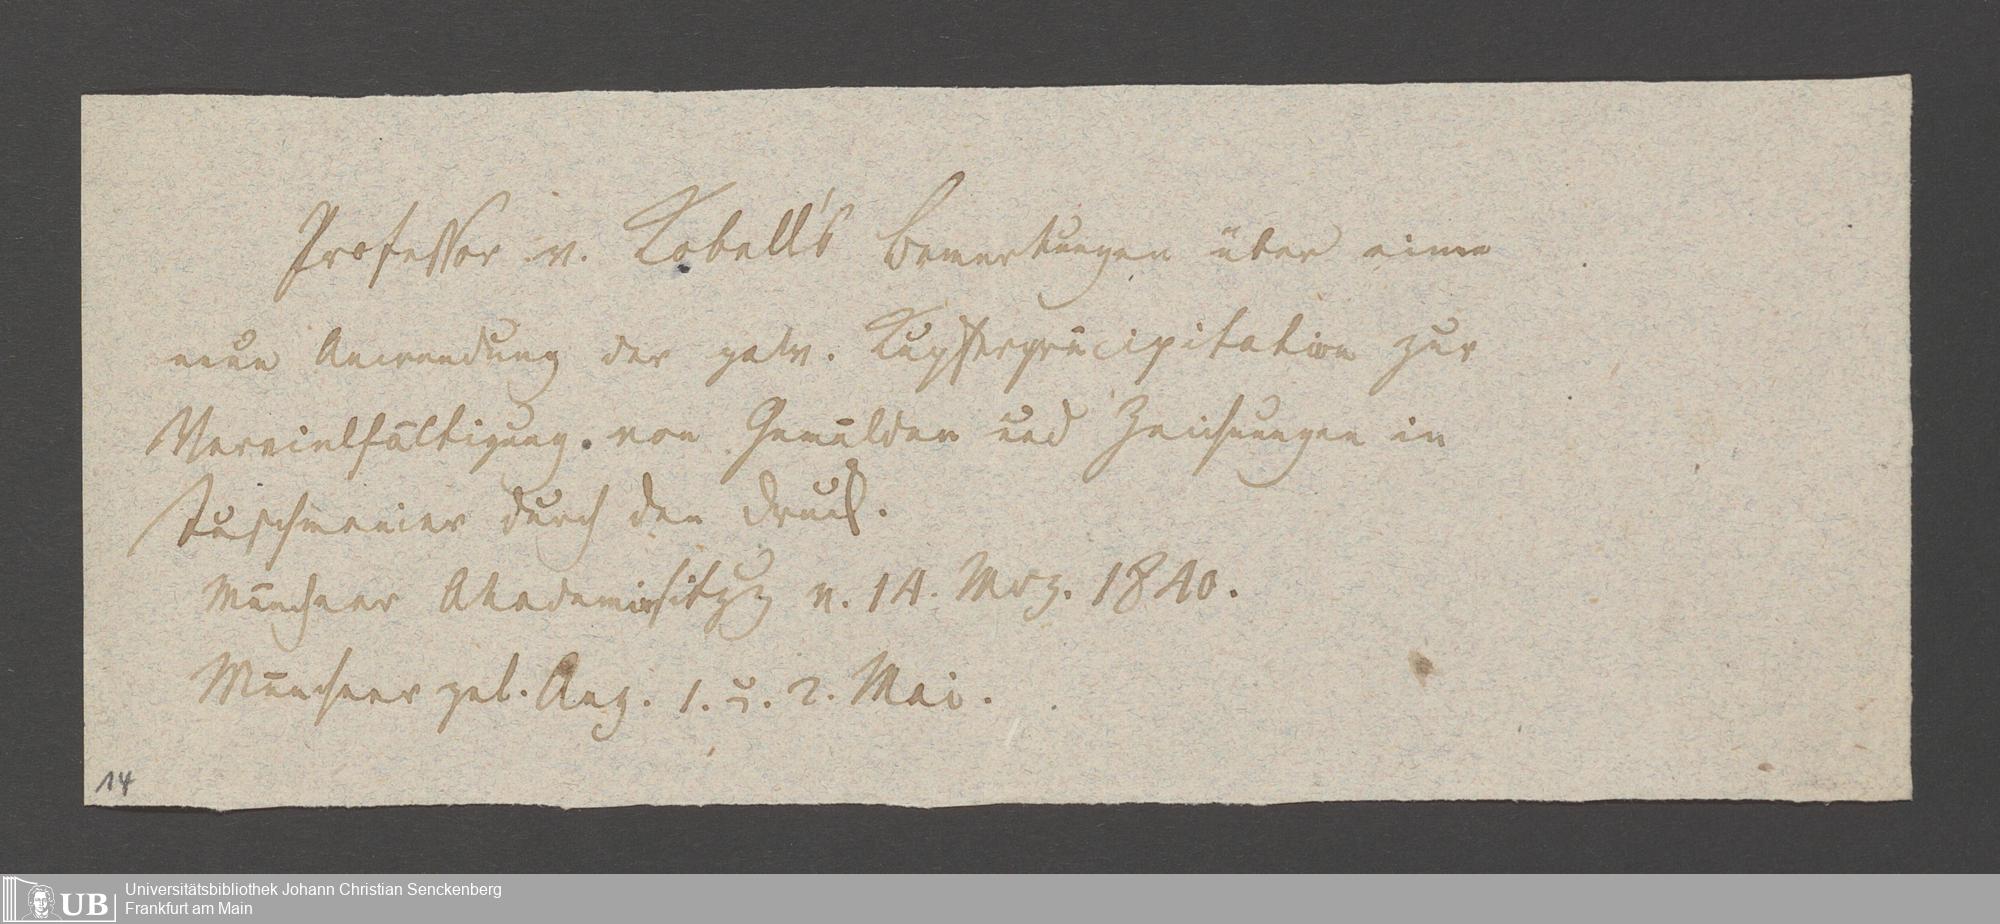 Professor v. Kobell's Bemerkungen über eine
neue Anwendung der galv. Kupferpräcipitation zur
Vervielfältigung von Gemälden und Zeichnungen in
Tuschmanier durch den Druck.
Münchner Akademiesitzg v. 14. Mrz. 1840.
Münchner gel. Anz. 1. u. 2. Mai.
14
UB
Universitätsbibliothek Johann Christian Senckenberg
Frankfurt am Main